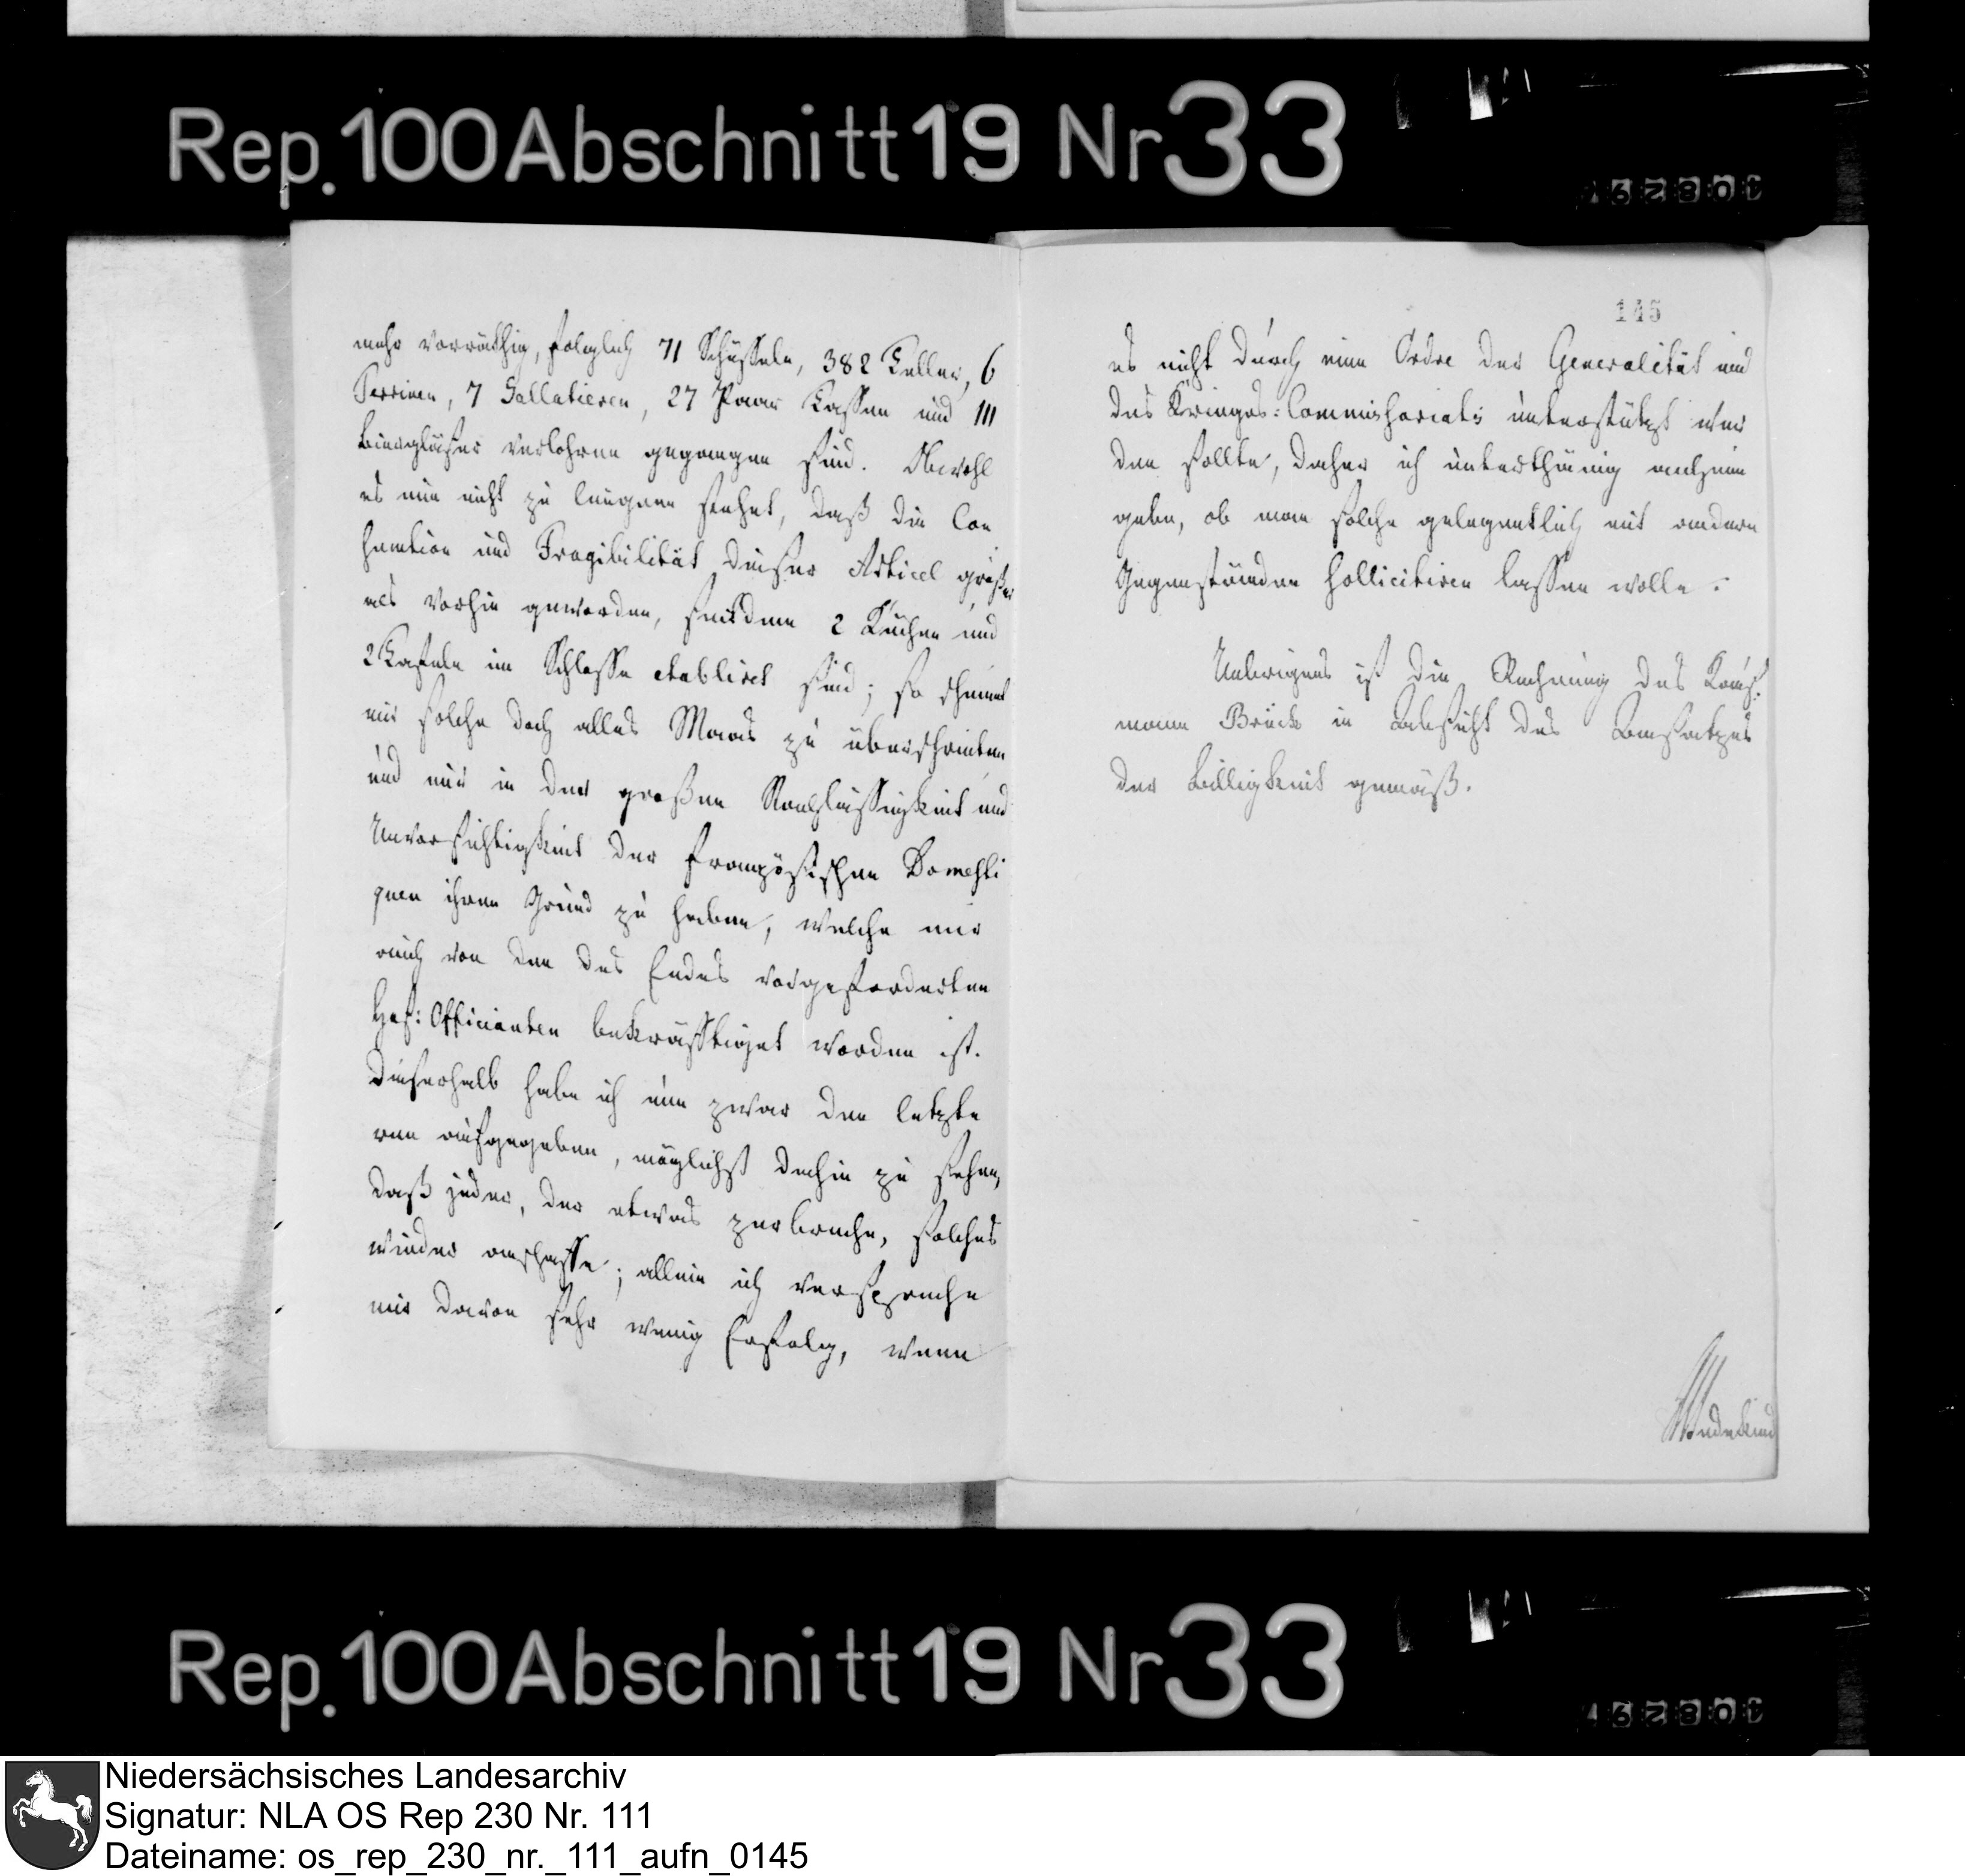 Rep. 100 Abschnitt 19 Nr 33
108297
mehr vorräthig, folglich 71 Schüsseln, 382 Teller, 6
Terrinen, 7 Sallatieren, 27 Paar Tassen und 111
Biergläser verlohren gegangen sind. Obwohl
es nun nicht zu läugnen stehet, daß die Con
sumtion und Fragibilität dieser Articel größer
als vorhin geworden, seitdem 2 Küchen und
2 Tafeln im Schlosse etablirt sind; so scheinet
mir solche doch alles Maas zu überschreiten
und nur in der großen Nachlässigkeit und
Unvorsichtigkeit der französischen Domesti
quen ihren Grund zu haben, welche mir
auch von den des Endes vorgeforderten
Hof: Officianten bekräfftiget worden ist.
Dieserhalb habe ich nun zwar den letzte
ren aufgegeben, möglichst dahin zu sehen,
daß jeder, der etwas zerbreche, solches
wieder anschaffe; allein ich verspreche
mir davon sehr wenig Erfolg, wenn
145
es nicht durch eine Ordre der Generalität und
des Krieges: Commissariats unterstützt wer
den sollte, daher ich unterthänig anheim
gebe, ob man solche gelegentlich mit andern
Gegenständen sollicitiren lassen wolle.
Uebrigens ist die Rechnung des Kauf:
mann Brück in Absicht des Ansatzes
der Billigkeit gemäß.
Wedekind
Rep. 100 Abschnitt 19 Nr 33
108297
Niedersächsisches Landesarchiv
Signatur: NLA OS Rep 230 Nr. 111
Dateiname: os_rep_230_nr._111_aufn_0145